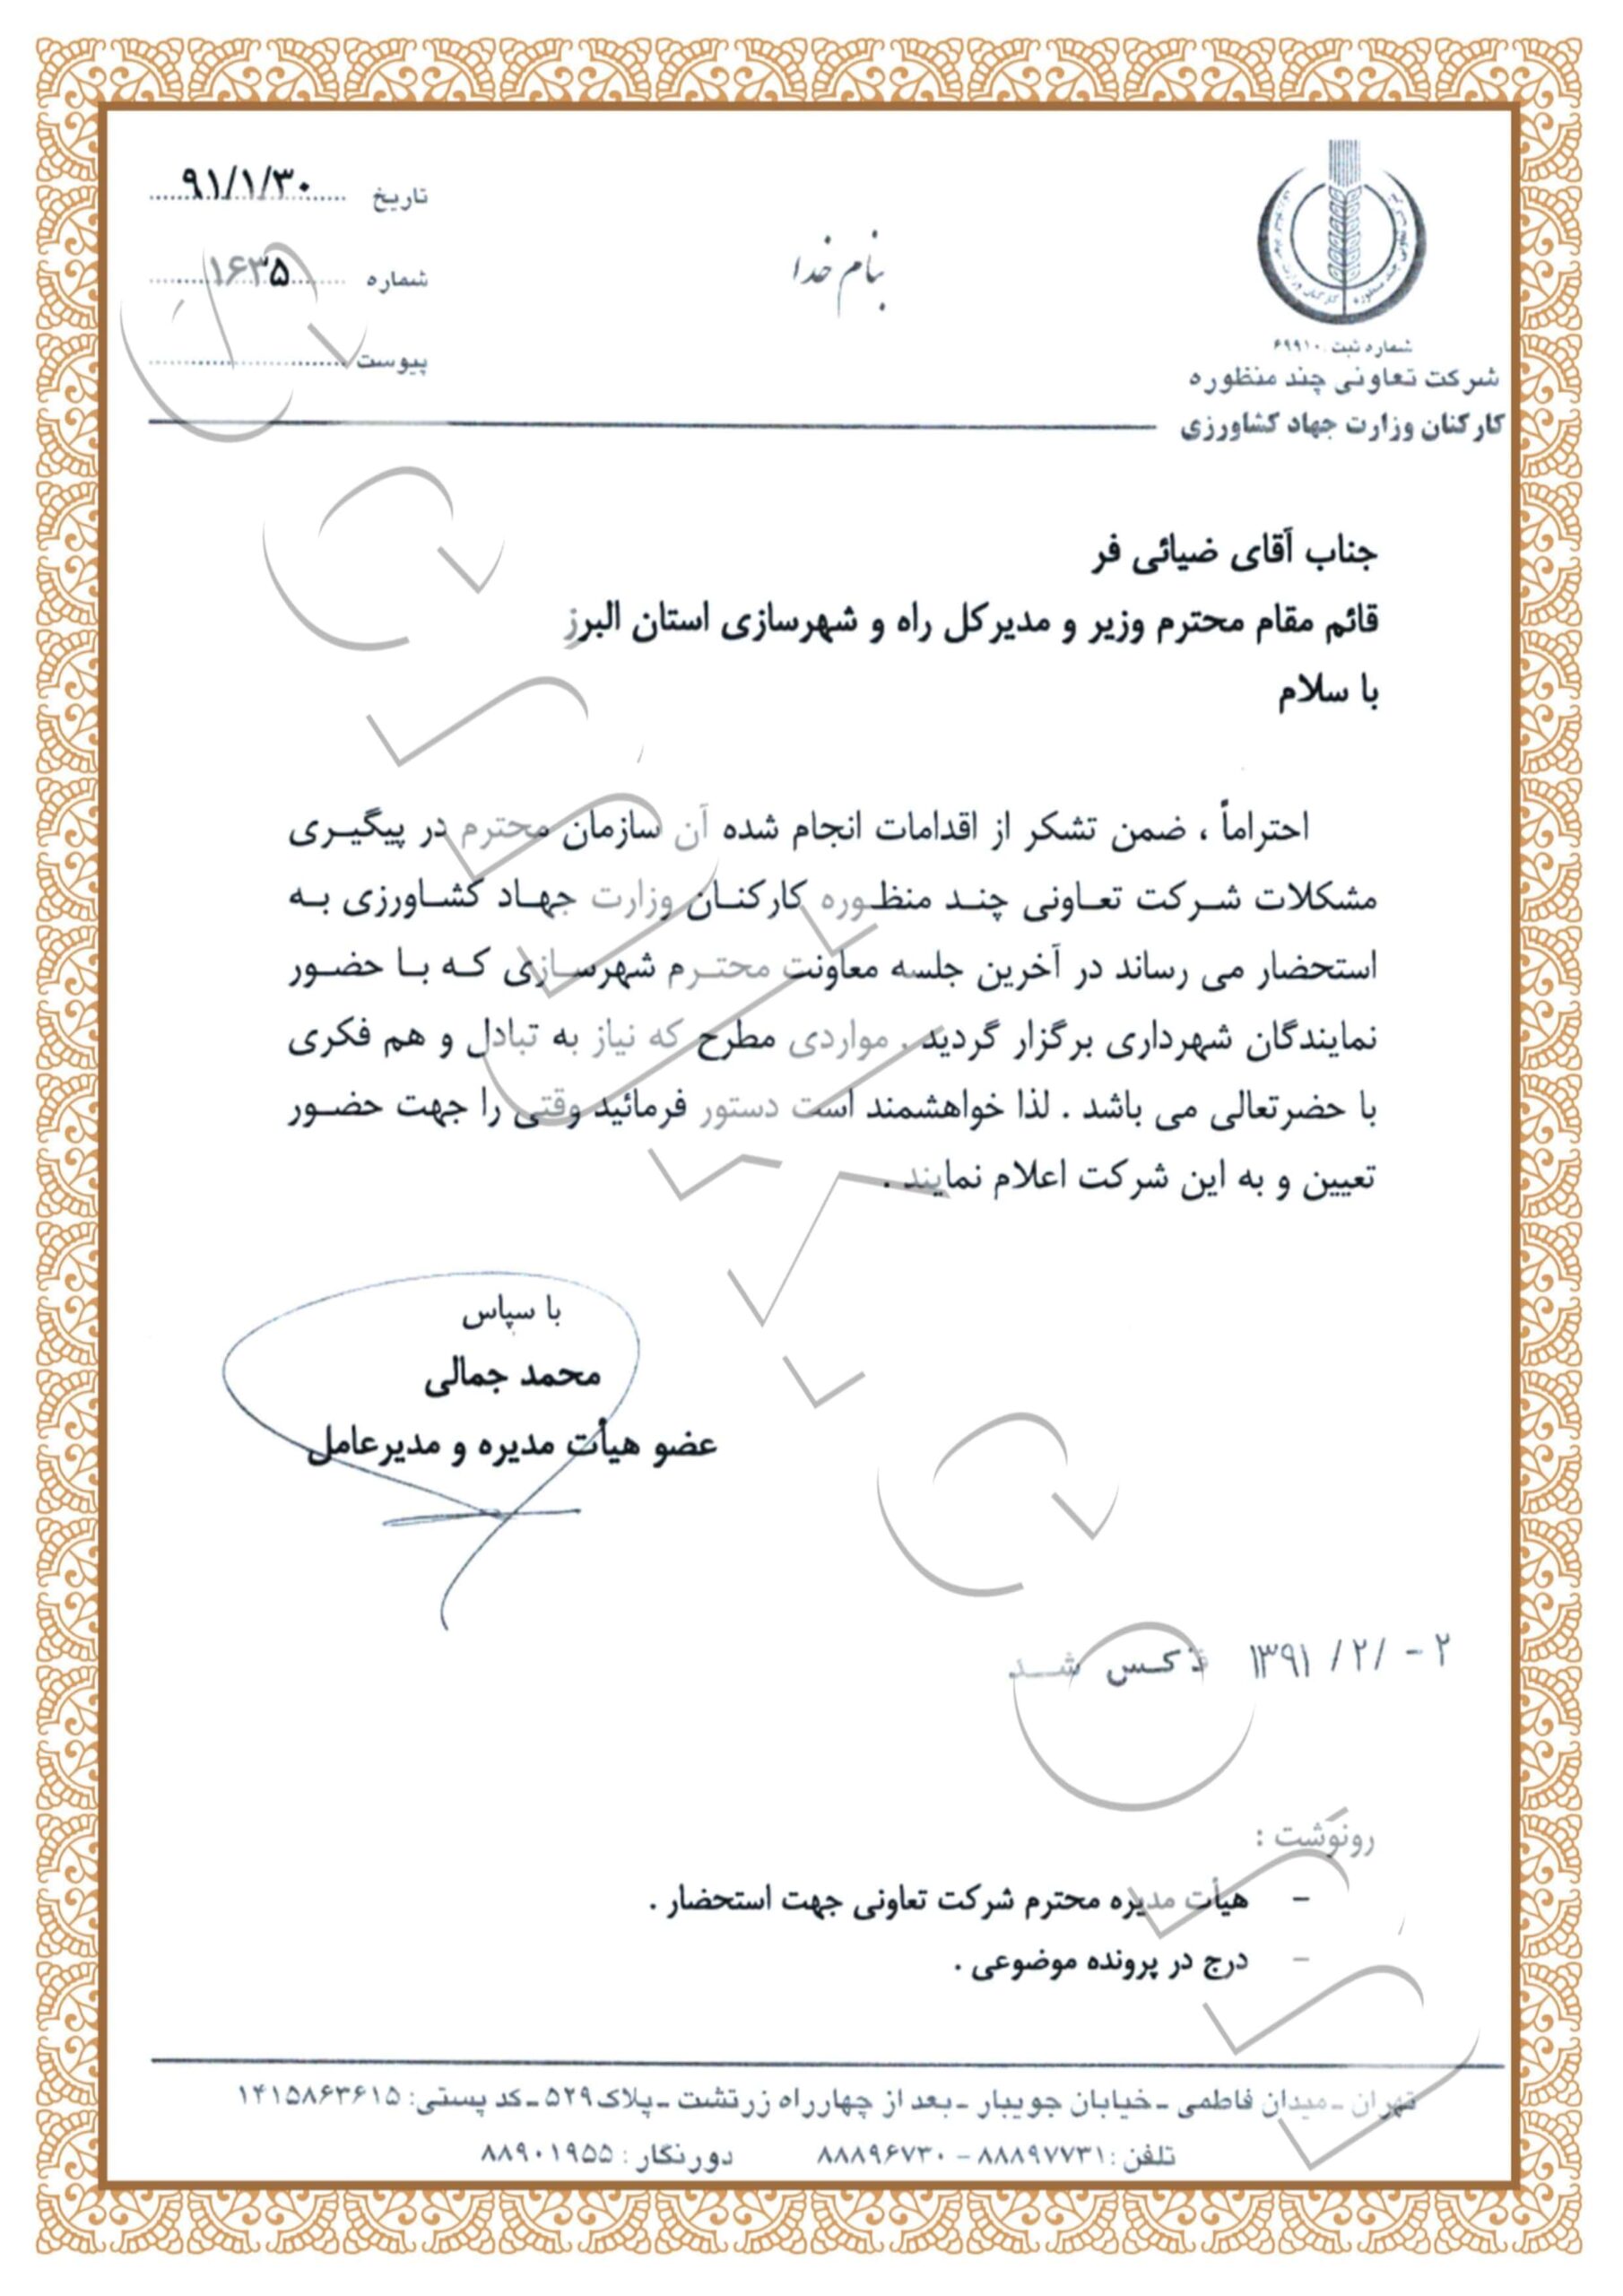 تاریخ ۹۱/۱/۳۰
شماره ۱۶۳۵
پیوست
بنام خدا
شماره ثبت ۶۹۹۱۰
شرکت تعاونی چند منظوره
کارکنان وزارت جهاد کشاورزی
جناب آقای ضیائی فر
قائم مقام محترم وزیر و مدیرکل راه و شهرسازی استان البرز
با سلام
احتراماً ، ضمن تشکر از اقدامات انجام شده آن سازمان محترم در پیگیری
مشکلات شرکت تعاونی چند منظوره کارکنان وزارت جهاد کشاورزی به
استحضار می رساند در آخرین جلسه معاونت محترم شهرسازی که با حضور
نمایندگان شهرداری برگزار گردید . مواردی مطرح که نیاز به تبادل و هم فکری
با حضرتعالی می باشد . لذا خواهشمند است دستور فرمائید وقتی را جهت حضور
تعیین و به این شرکت اعلام نمایند .
با سپاس
محمد جمالی
عضو هیأت مدیره و مدیرعامل
۲ - /۲ / ۱۳۹۱ فاکس شد
رونوشت :
– هیأت مدیره محترم شرکت تعاونی جهت استحضار .
– درج در پرونده موضوعی .
تهران ـ میدان فاطمی ـ خیابان جویبار ـ بعد از چهارراه زرتشت ـ پلاک ۵۲۹ ـ کد پستی: ۱۴۱۵۸۶۳۶۱۵
تلفن : ۸۸۸۹۷۷۳۱ – ۸۸۸۹۶۷۳۰ دورنگار : ۸۸۹۰۱۹۵۵